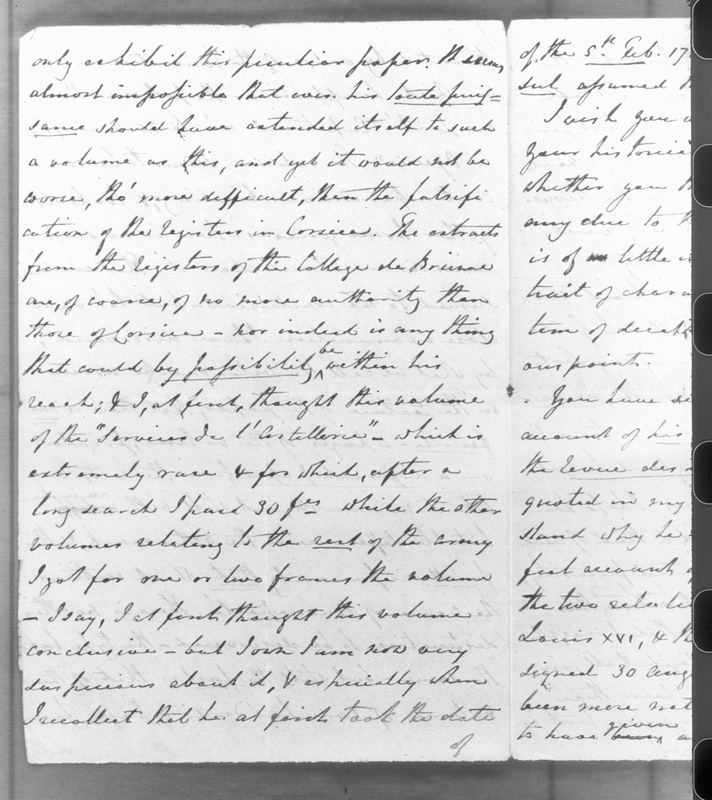 only exhibit this peculiar paper. It seems
almost impossible that even his toute puis=
sance should have extended itself to such
a volume as this, and yet it would not be
worse, tho' more difficult, than the falsifi
cation of the registers in Corsica. The extracts
from the registers of the College de Brienne
are, of course, of no more authority than
those of Corsica – nor indeed is any thing
that could by possibility be within his
reach; & I, at first, thought this volume
of the "Services de l'Artillerie" – which is
extremely rare & for which, after a
long search I paid 30 fcs while the other
volumes relating to the rest of the army
I got for one or two francs the volume
– I say, I at first thought this volume
conclusive – but I own I am now very
suspicious about it, & especially when
I recollect that he at first took the date
of
of the 5th Feb. 17
sul assumed
I wish you
your historic
whether you
any clue to
is of little
trait of char
tem of
ous points.
You have
account of his
the revue des
quoted in my
stand why he
first account
the two relat
Louis XVI, &
signed 30 aug
been more nat
to have given a